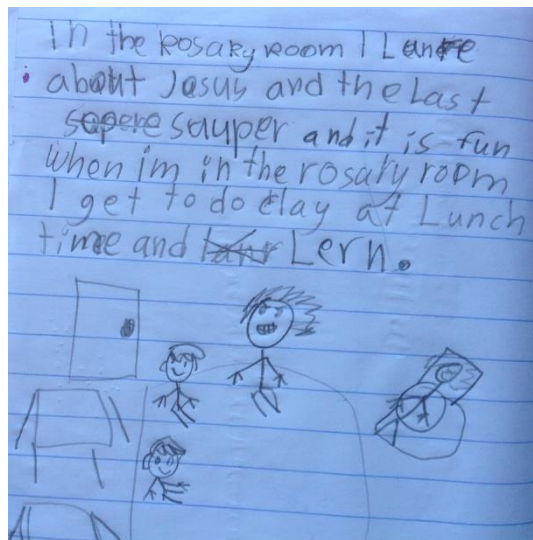 In the Rosary room I Lanre
about Jesus and the Last
sauper and it is fun
when im in the rosary room
I get to do clay at Lunch
time and Lern.